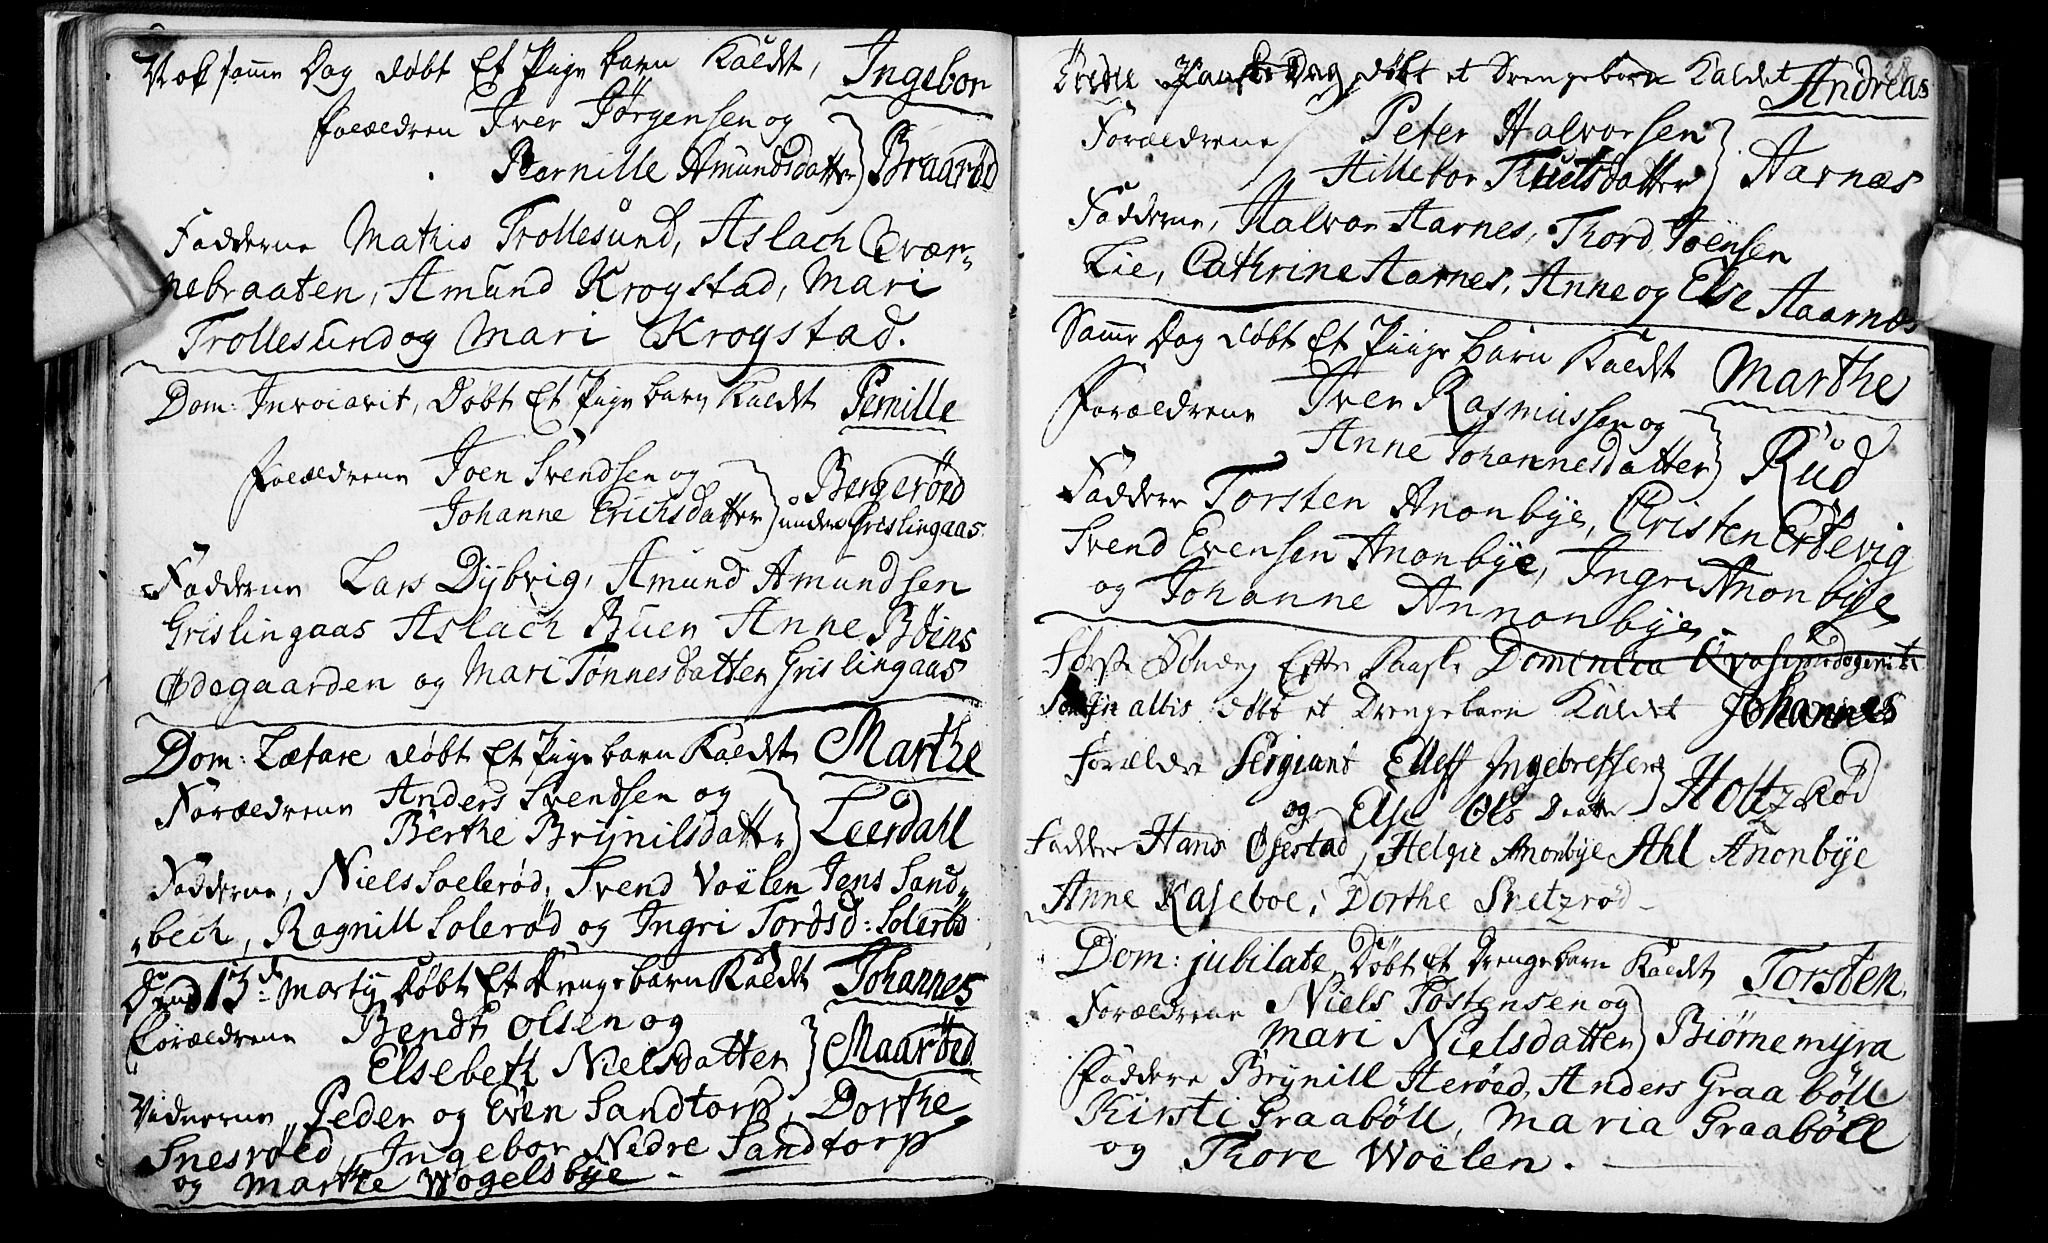 Nok samme Dag døbt Et Pige barn Kaldt, Ingebor
foræld​ren Iver Jørgensen og
Pernille Amundsdatter Braarød
Fadderne Mathis Trollesund, Aslach Qvær-
nebraaten, Amund Krogstad, Mari
Trollesund og Mari Krogstad.
Dom: Invocavit, Døbt Et Pige barn Kaldt Pernille
forældrene Joen Svendsen og
Johanne Erichsdatter Bergerøed
under Grislingaas
Fadderne Lars Dybvig, Amund Amundsen
Grislingaas Aslach Buen Anne Bøens
Ødegaarden og Mari Tønnesdatter Grislingaas
Dom: Lætare døbt Et Pige barn Kaldt Marthe
Forældrene Anders Svendsen og
Berthe Brynilsdatter Leerdahl
Fadderne, Niels Soelerød, Svend Voelen Jens Sand-
bech, Ragnill Solerød og Ingri Tordsd: Solerød
Dend 13de Martij døbt Et Drengebarn Kaldt Johannes
Forældrene Bendt Olsen og
Elsebeth Nielsdatter Maarøed
Vidnerne Peder og Even Sandtorp, Dorthe
Snesrøed, Ingebor Nedre Sandtorp
og Marthe Wogelsbye -
Tredie Paaske Dag døbt et Drengebarn Kaldet Andreas
Forældrene Peter Halvorsen
Hillebor Knutsdatter Aarnæs
Fadderne, Halvor Aarnes, Thord Joensen
Lie, Cathrine Aarnes, Anne og Else Aaarnæs
Samme Dag døbt Et Piige barn Kaldt Marthe
Forældrene Iver Rasmussen og
Anne Johannesdatter Rud
Faddere Torsten Anonbye, Christen Erte​vig
Svend Evensen Anonbye, Ingri Anonbye
og Johanne Annonbye.
Første Søndag Efter Paaske Domenica Qvasimodogeniti
in albis døbt et Drengebarn Kaldet Johannes
Forældre Sergiant Elleff Ingebretsen
og Else Ols Daatter Holtzrød
Faddere Hans Opestad, Helgie Anonbye Ahl Anonbye
Anne Kaseboe, Dorthe Snetzrød -
Dom: jubilate Døbt Et Drengebarn Kaldt Torsten,
Forældrene Niels Tostensen og
Mari Nielsdatter Biørnemyra
Faddere Brynill Herøed, Anders Graabøll
Kirsti Graabøll, Maria Graabøll
og Thore Woelen.